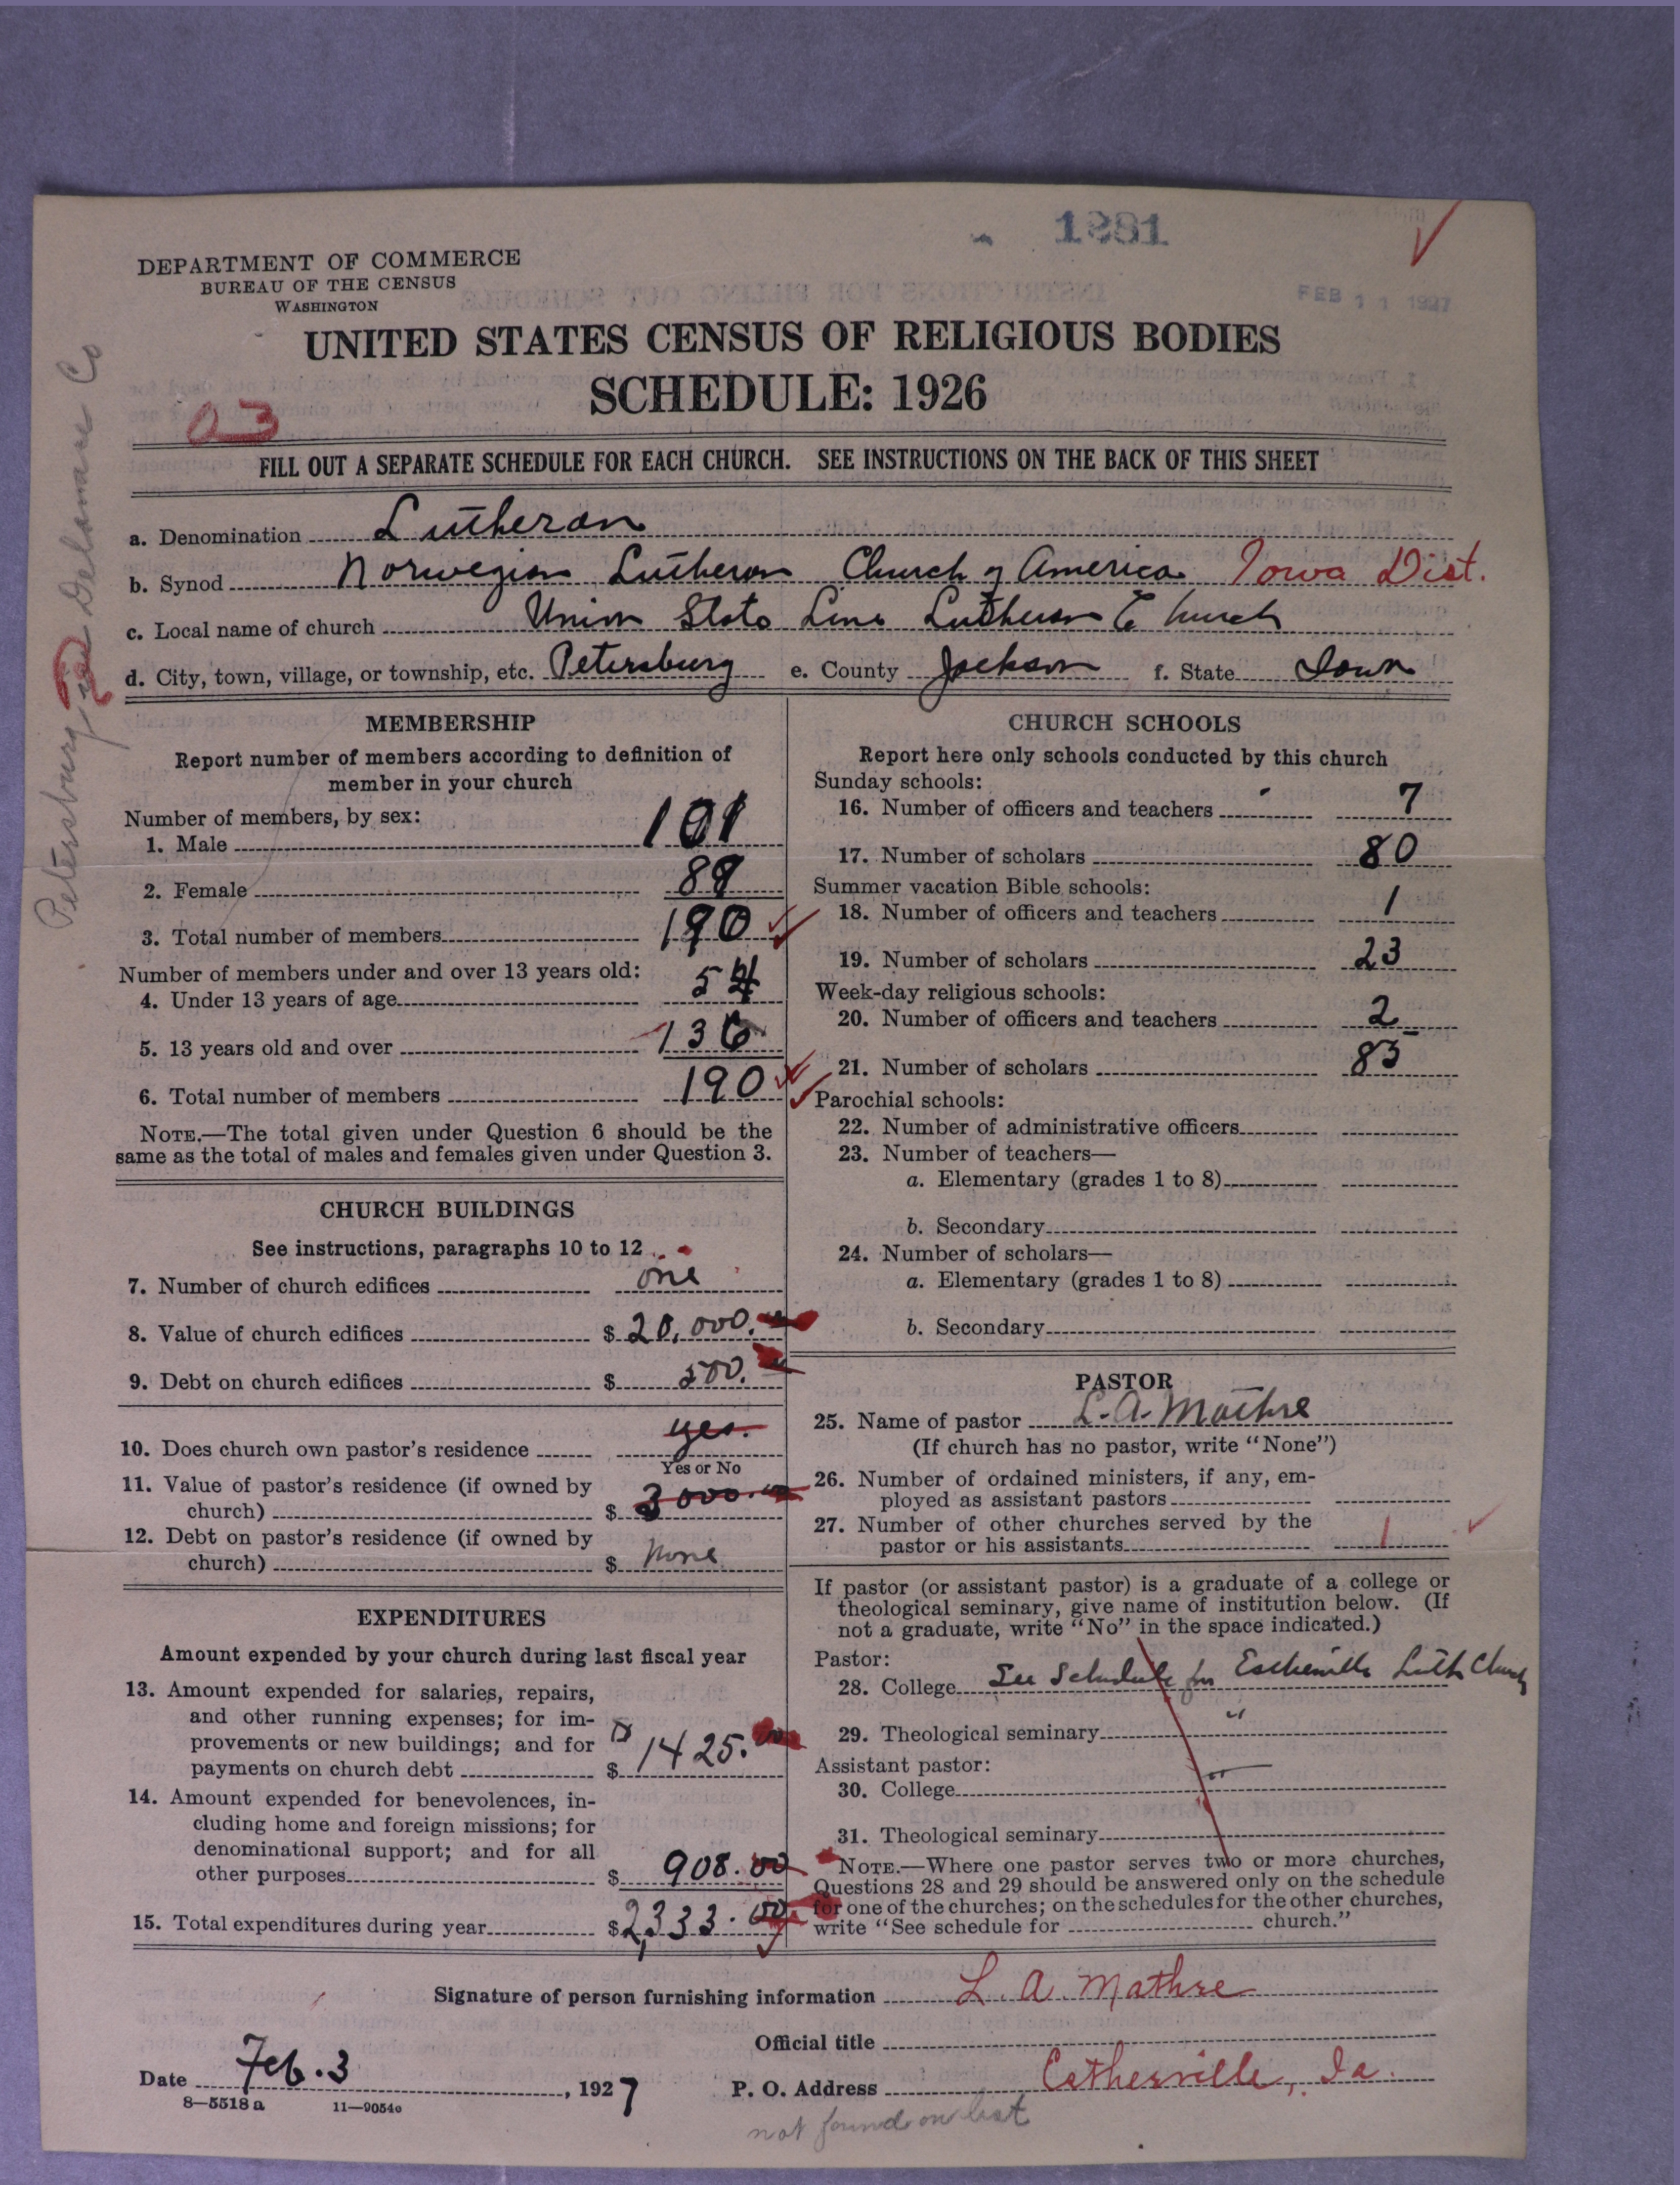 1281
FEB 11 1927
DEPARTMENT OF COMMERCE
BUREAU OF THE CENSUS
WASHINGTON
UNITED STATES CENSUS OF RELIGIOUS BODIES
SCHEDULE: 1926
03
FILL OUT A SEPARATE SCHEDULE FOR EACH CHURCH. SEE INSTRUCTIONS ON THE BACK OF THIS SHEET
Petersburg Delaware Co
a. Denomination Lutheran
b. Synod Norwegian Lutheran Church of America Iowa Dist.
c. Local name of church Union State Line Lutheran Church
d. City, town, village, or township, etc. Petersburg e. County Jackson f. State Iowa
MEMBERSHIP
Report number of members according to definition of
member in your church
Number of members, by sex:
1. Male 101
2. Female 89
3. Total number of members 190
Number of members under and over 13 years old:
4. Under 13 years of age 54
5. 13 years old and over 136
6. Total number of members 190
NOTE.—The total given under Question 6 should be the
same as the total of males and females given under Question 3.
CHURCH BUILDINGS
See instructions, paragraphs 10 to 12
7. Number of church edifices one
8. Value of church edifices $ 20,000.
9. Debt on church edifices $ 500.
10. Does church own pastor's residence yes.
Yes or No
11. Value of pastor's residence (if owned by
church) $ 3000.
12. Debt on pastor's residence (if owned by
church) $ none
EXPENDITURES
Amount expended by your church during last fiscal year
13. Amount expended for salaries, repairs,
and other running expenses; for im-
provements or new buildings; and for
payments on church debt $ 1425.
14. Amount expended for benevolences, in-
cluding home and foreign missions; for
denominational support; and for all
other purposes $ 908.00
15. Total expenditures during year $ 2,333.00
CHURCH SCHOOLS
Report here only schools conducted by this church
Sunday schools:
16. Number of officers and teachers 7
17. Number of scholars 80
Summer vacation Bible schools:
18. Number of officers and teachers 1
19. Number of scholars 23
Week-day religious schools:
20. Number of officers and teachers 2
21. Number of scholars 85
Parochial schools:
22. Number of administrative officers
23. Number of teachers—
a. Elementary (grades 1 to 8)
b. Secondary
24. Number of scholars—
a. Elementary (grades 1 to 8)
b. Secondary
PASTOR
25. Name of pastor L. A. Mathre
(If church has no pastor, write "None")
26. Number of ordained ministers, if any, em-
ployed as assistant pastors
27. Number of other churches served by the
pastor or his assistants 1
If pastor (or assistant pastor) is a graduate of a college or
theological seminary, give name of institution below. (If
not a graduate, write "No" in the space indicated.)
Pastor:
28. College See Schedule for Estherville Luth Church
29. Theological seminary "
Assistant pastor:
30. College
31. Theological seminary
NOTE.—Where one pastor serves two or more churches,
Questions 28 and 29 should be answered only on the schedule
for one of the churches; on the schedules for the other churches,
write "See schedule for church."
Signature of person furnishing information L. A. Mathre
Official title
Date Feb. 3, 1927 P. O. Address Estherville, Ia.
8—5518 a 11—9054c
not found on list